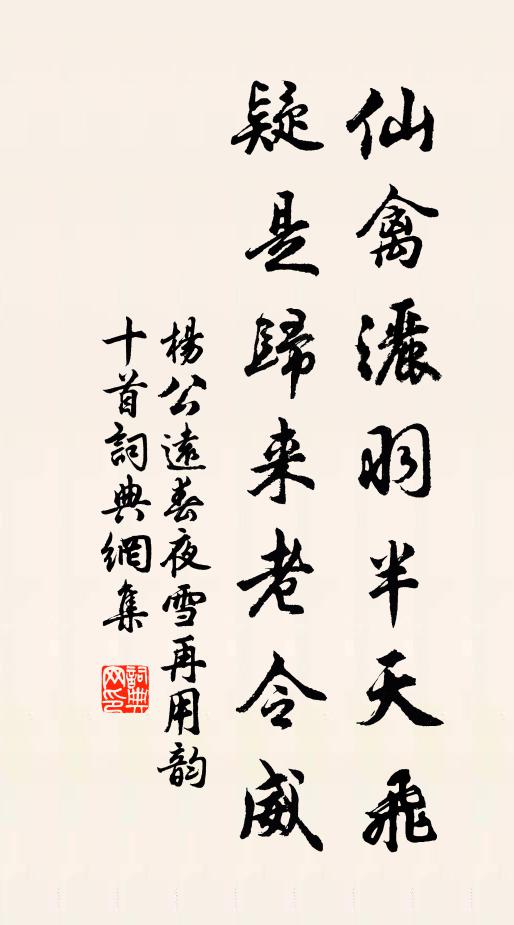 仙禽灑羽半天飛
疑是歸来老令威
楊公遠春夜雪再用韵
十首詞典網集
詞典
网印